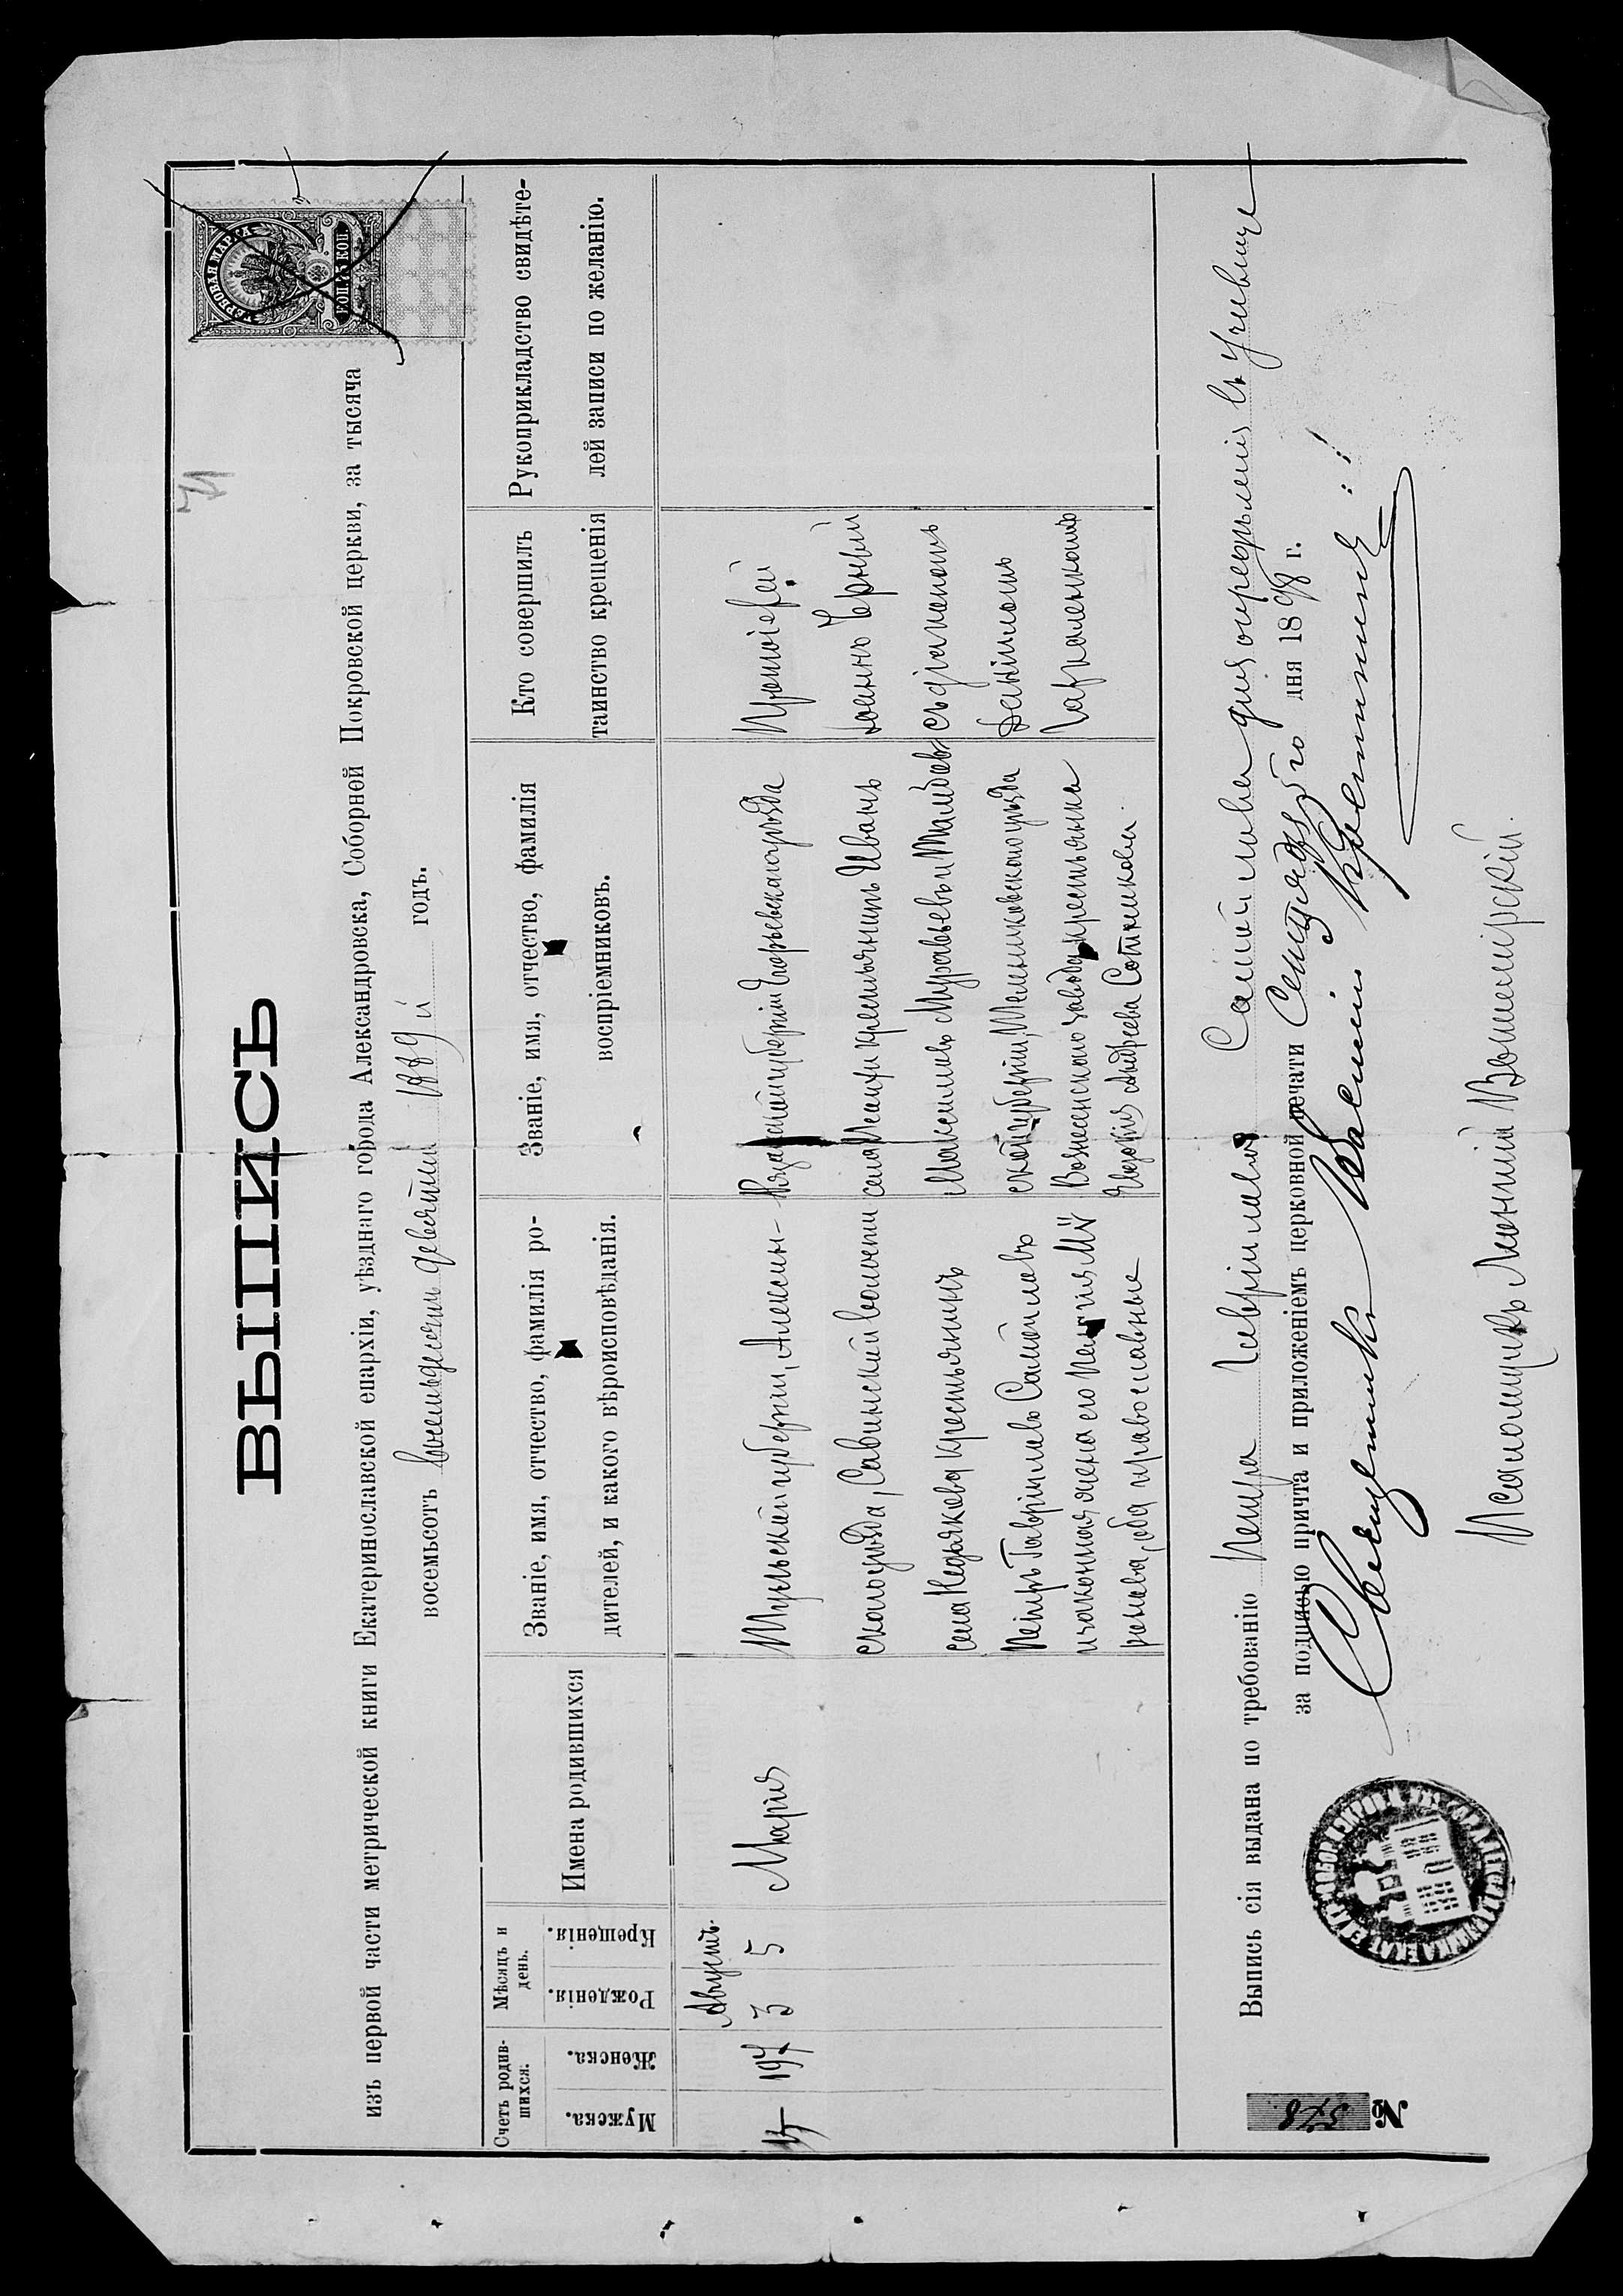 ВЫПИСЬ
ГЕРБОВАЯ МАРКА
изъ первой части метрической книги Екатеринославской епархіи, уѣзднаго города Александровска, Соборной Покровской церкви, за тысяча
восемьсотъ восемьдесятъ девятый 1889 й годъ.
Счетъ родив-
шихся.
Мужеска.
Женска.
Мѣсяцъ и
день.
Рожденія.
Крещенія.
Имена родившихся
Званіе, имя, отчество, фамилія ро-
дителей, и какого вѣроисповѣданія.
Званіе, имя, отчество, фамилія
воспріемниковъ.
Кто совершилъ
таинство крещенія
Рукоприкладство свидѣте-
лей записи по желанію.
Августъ.
197 3 5
Марія
Тульской губерніи, Алексин-
скаго уѣзда, Савинской волости
села крестьянинъ
Петръ Гавріиловъ Самойловъ
и законная жена его
оба православные
Рязанской губерніи Егорьевскаго уѣзда
села крестьянинъ Иванъ
Максимовъ Муравьевъ и Тамбов
ской губерніи, уѣзда
Вознесенскаго завода крестьянка
Евдокія Андреева Сотникова.
Протоіерей
Іоаннъ Чорный
съ діакономъ
Даніиломъ
Гавриленкомъ
Выпись сія выдана по требованію Петра Гавріилова Самойлова для опредѣленія въ училище
за подписью причта и приложеніемъ церковной печати го дня 1898 г.
№ 578
Священникъ Василій
Псаломщикъ Леонтій